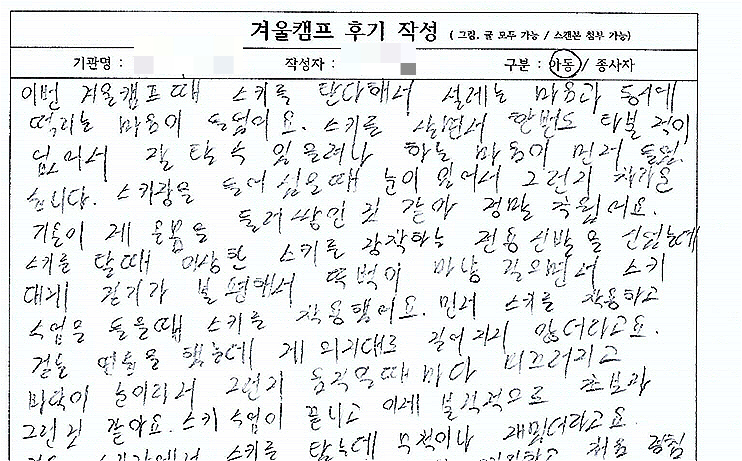 겨울캠프 후기 작성 ( 그림. 글 모두 가능 / 스캔본 첨부 가능)
기관명 : 작성자 : 구분 : 아동 / 종사자
이번 겨울캠프때 스키를 탄다해서 설레는 마음과 동시에
떨리는 마음이 들었어요. 스키를 살면서 한번도 타본 적이
없어서 잘 탈 수 있을려나 하는 마음이 먼저 들었
습니다. 스키장을 들어 섰을때 눈이 있어서 그런지 차가운
기운이 제 온몸을 둘러 쌓인 것 같아 정말 추웠어요.
스키를 탈때 이상한 스키를 장착하는 전용신발을 신었는데
대게 걷기가 불편해서 뚜벅이 마냥 걸으면서 스키
수업을 들을때 스키를 착용했어요. 먼저 스키를 착용하고
걷는 연습을 했는데 제 의지대로 걸어지지 않더라고요.
바닥이 눈이라서 그런지 움직일때마다 미끄러지고
그런 것 같아요. 스키 수업이 끝나고 이제 본격적으로 초보자
스키를 탔는데 무척이나 재밌더라고요.
처음